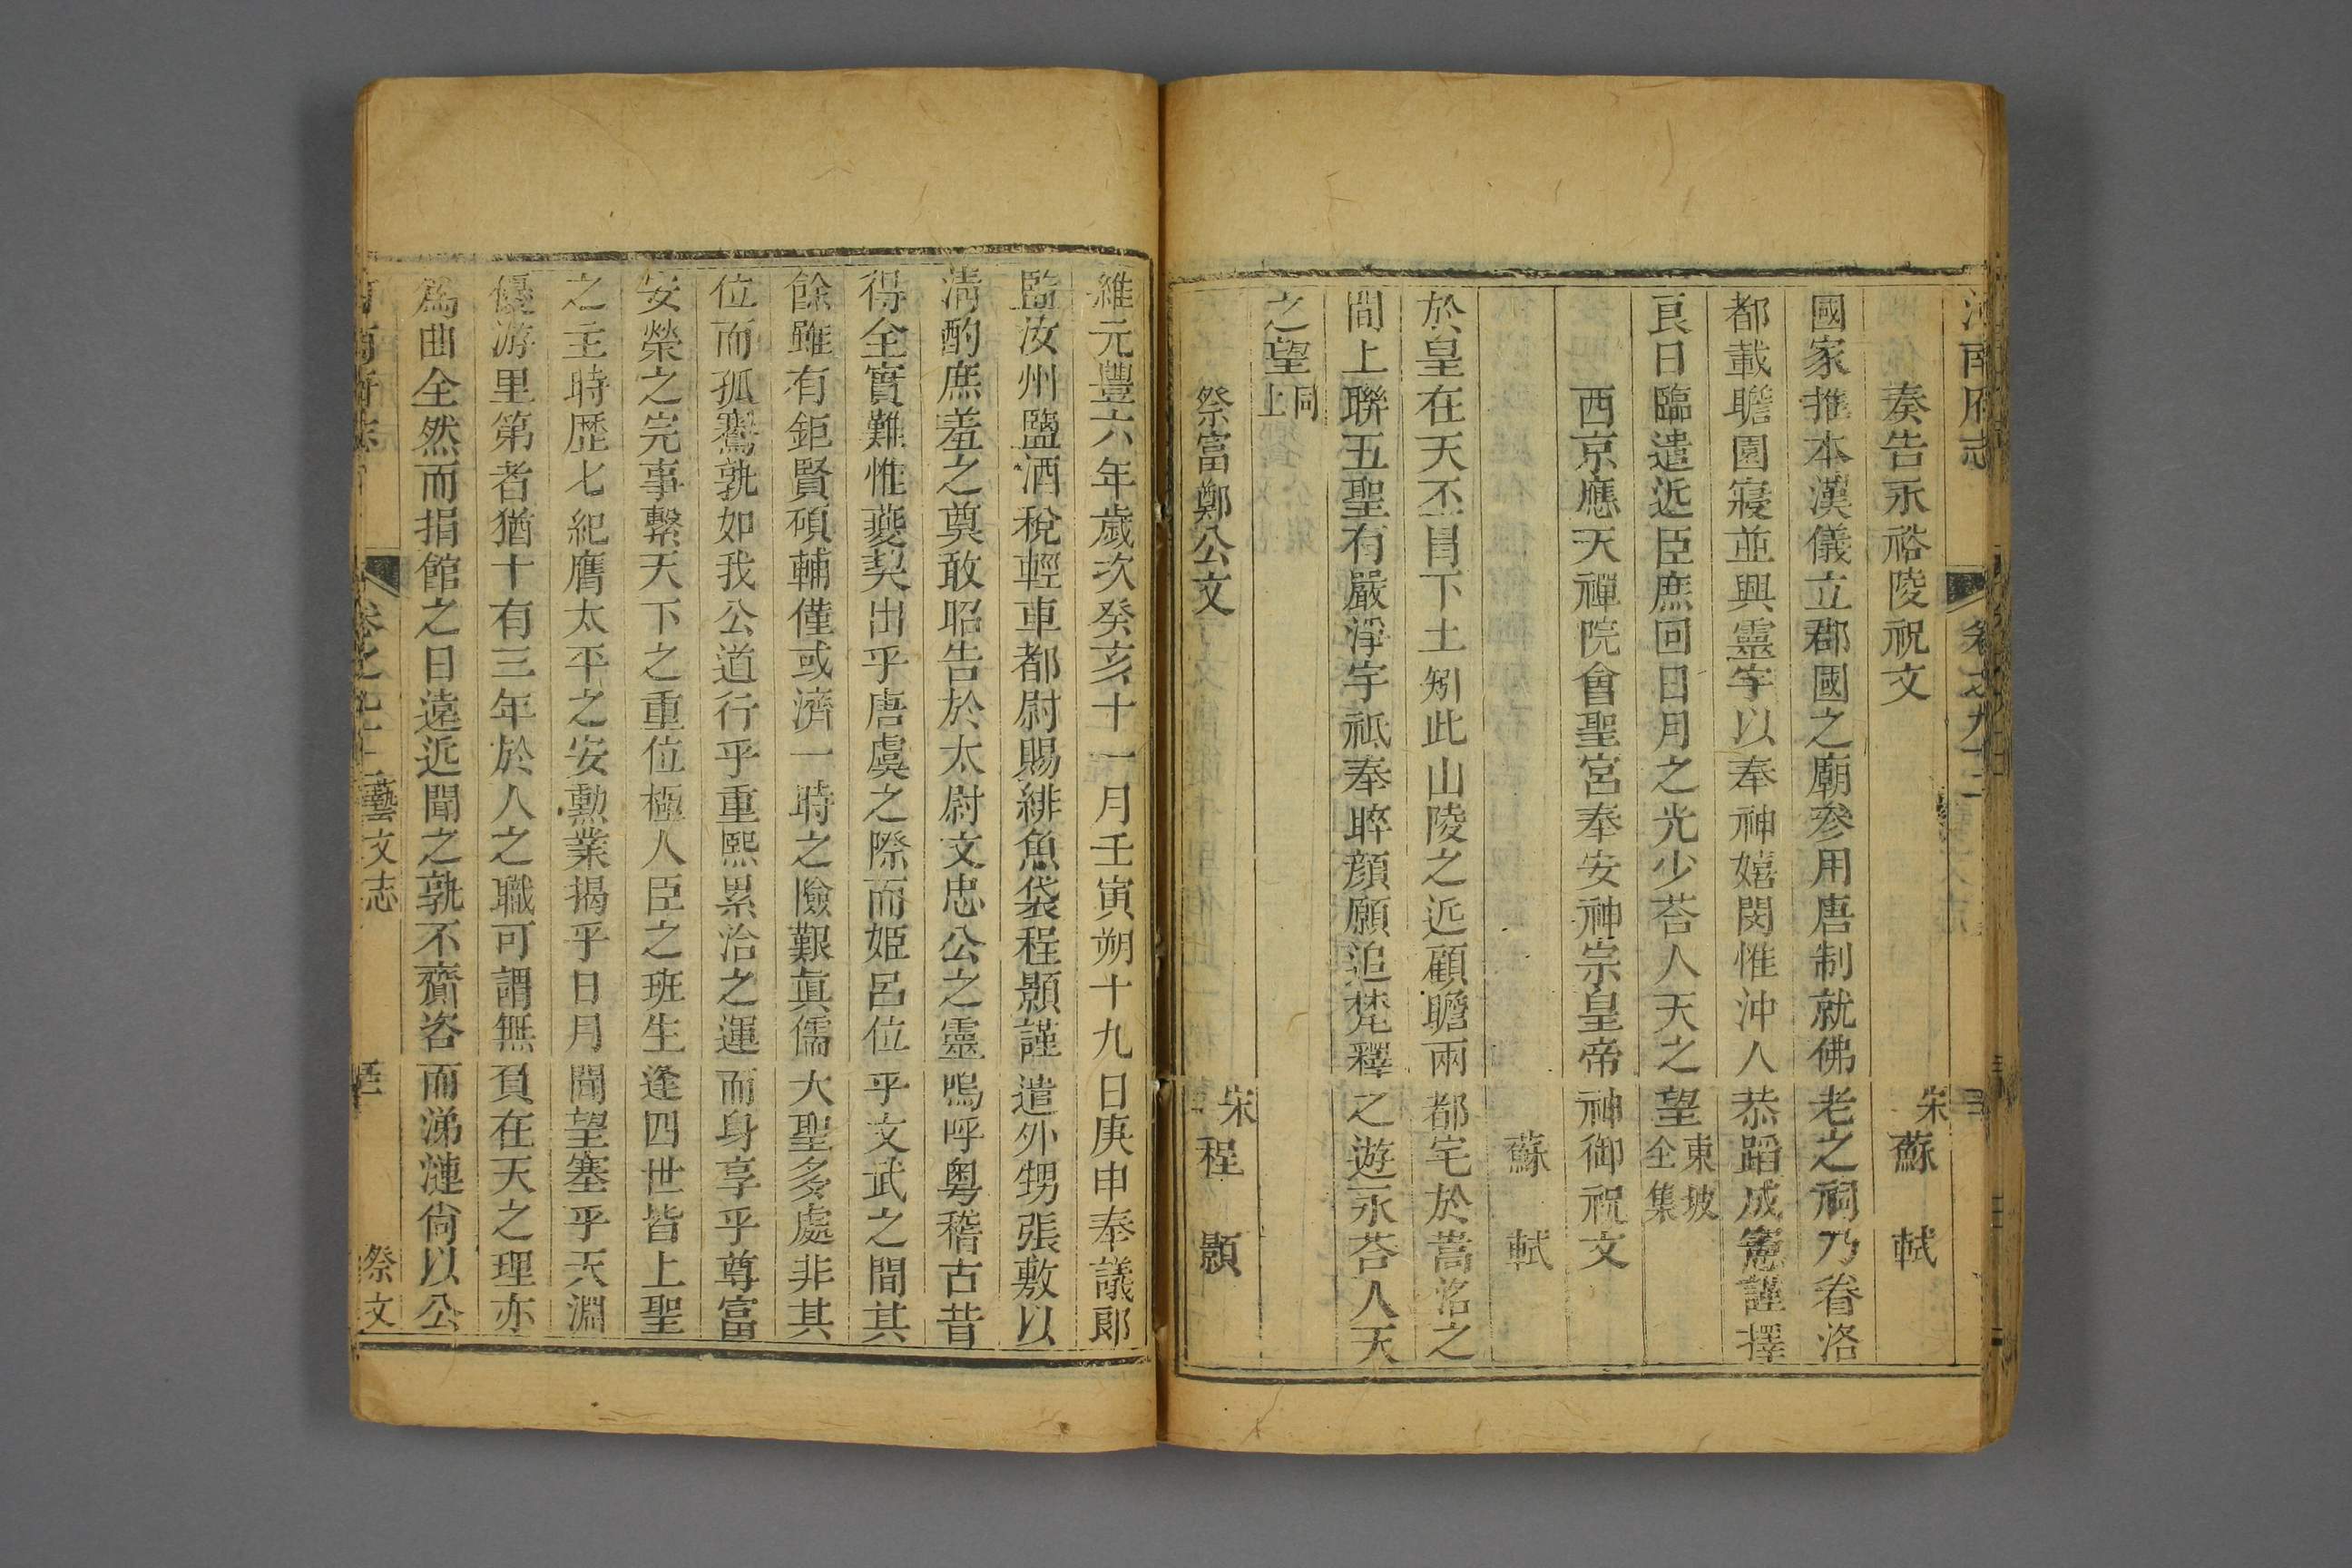 河南府志 卷之九十二
奏告永裕陵祝文 宋蘇軾
國家推本漢儀立郡國之廟參用唐制就佛老之祠乃眷洛
都載瞻園寢並興靈宇以奉神嬉閔惟沖人恭蹈成憲謹擇
良日臨遣近臣庶回日月之光少荅人天之望東坡全集
西京應天禪院會聖宮奉安神宗皇帝神御祝文
蘇軾
於皇在天丕冒下土矧此山陵之近顧瞻兩都宅於嵩洛之
間上聯五聖有嚴淨宇祗奉睟顏願追梵釋之遊永荅人天
之望同上
祭富鄭公文 宋程顥
維元豐六年歲次癸亥十一月壬寅朔十九日庚申奉議郎
監汝州鹽酒稅輕車都尉賜緋魚袋程顥謹遣外甥張敷以
清酌庶羞之奠敢昭告於太尉文忠公之靈嗚呼粵稽古昔
得全實難惟夔契出乎唐虞之際而姬呂位乎文武之間其
餘雖有鉅賢碩輔僅或濟一時之險艱真儒大聖多處非其
位而孤騫孰如我公道行乎重熙累洽之運而身享乎尊富
安榮之完事繫天下之重位極人臣之班生逢四世皆上聖
之主時歷七紀膺太平之安勳業揭乎日月聞望塞乎天淵
優游里第者猶十有三年於人之職可謂無負在天之理亦
為曲全然而捐館之日遠近聞之孰不齎咨而涕漣尚以公
河南府志 卷之九十二 藝文志 祭文